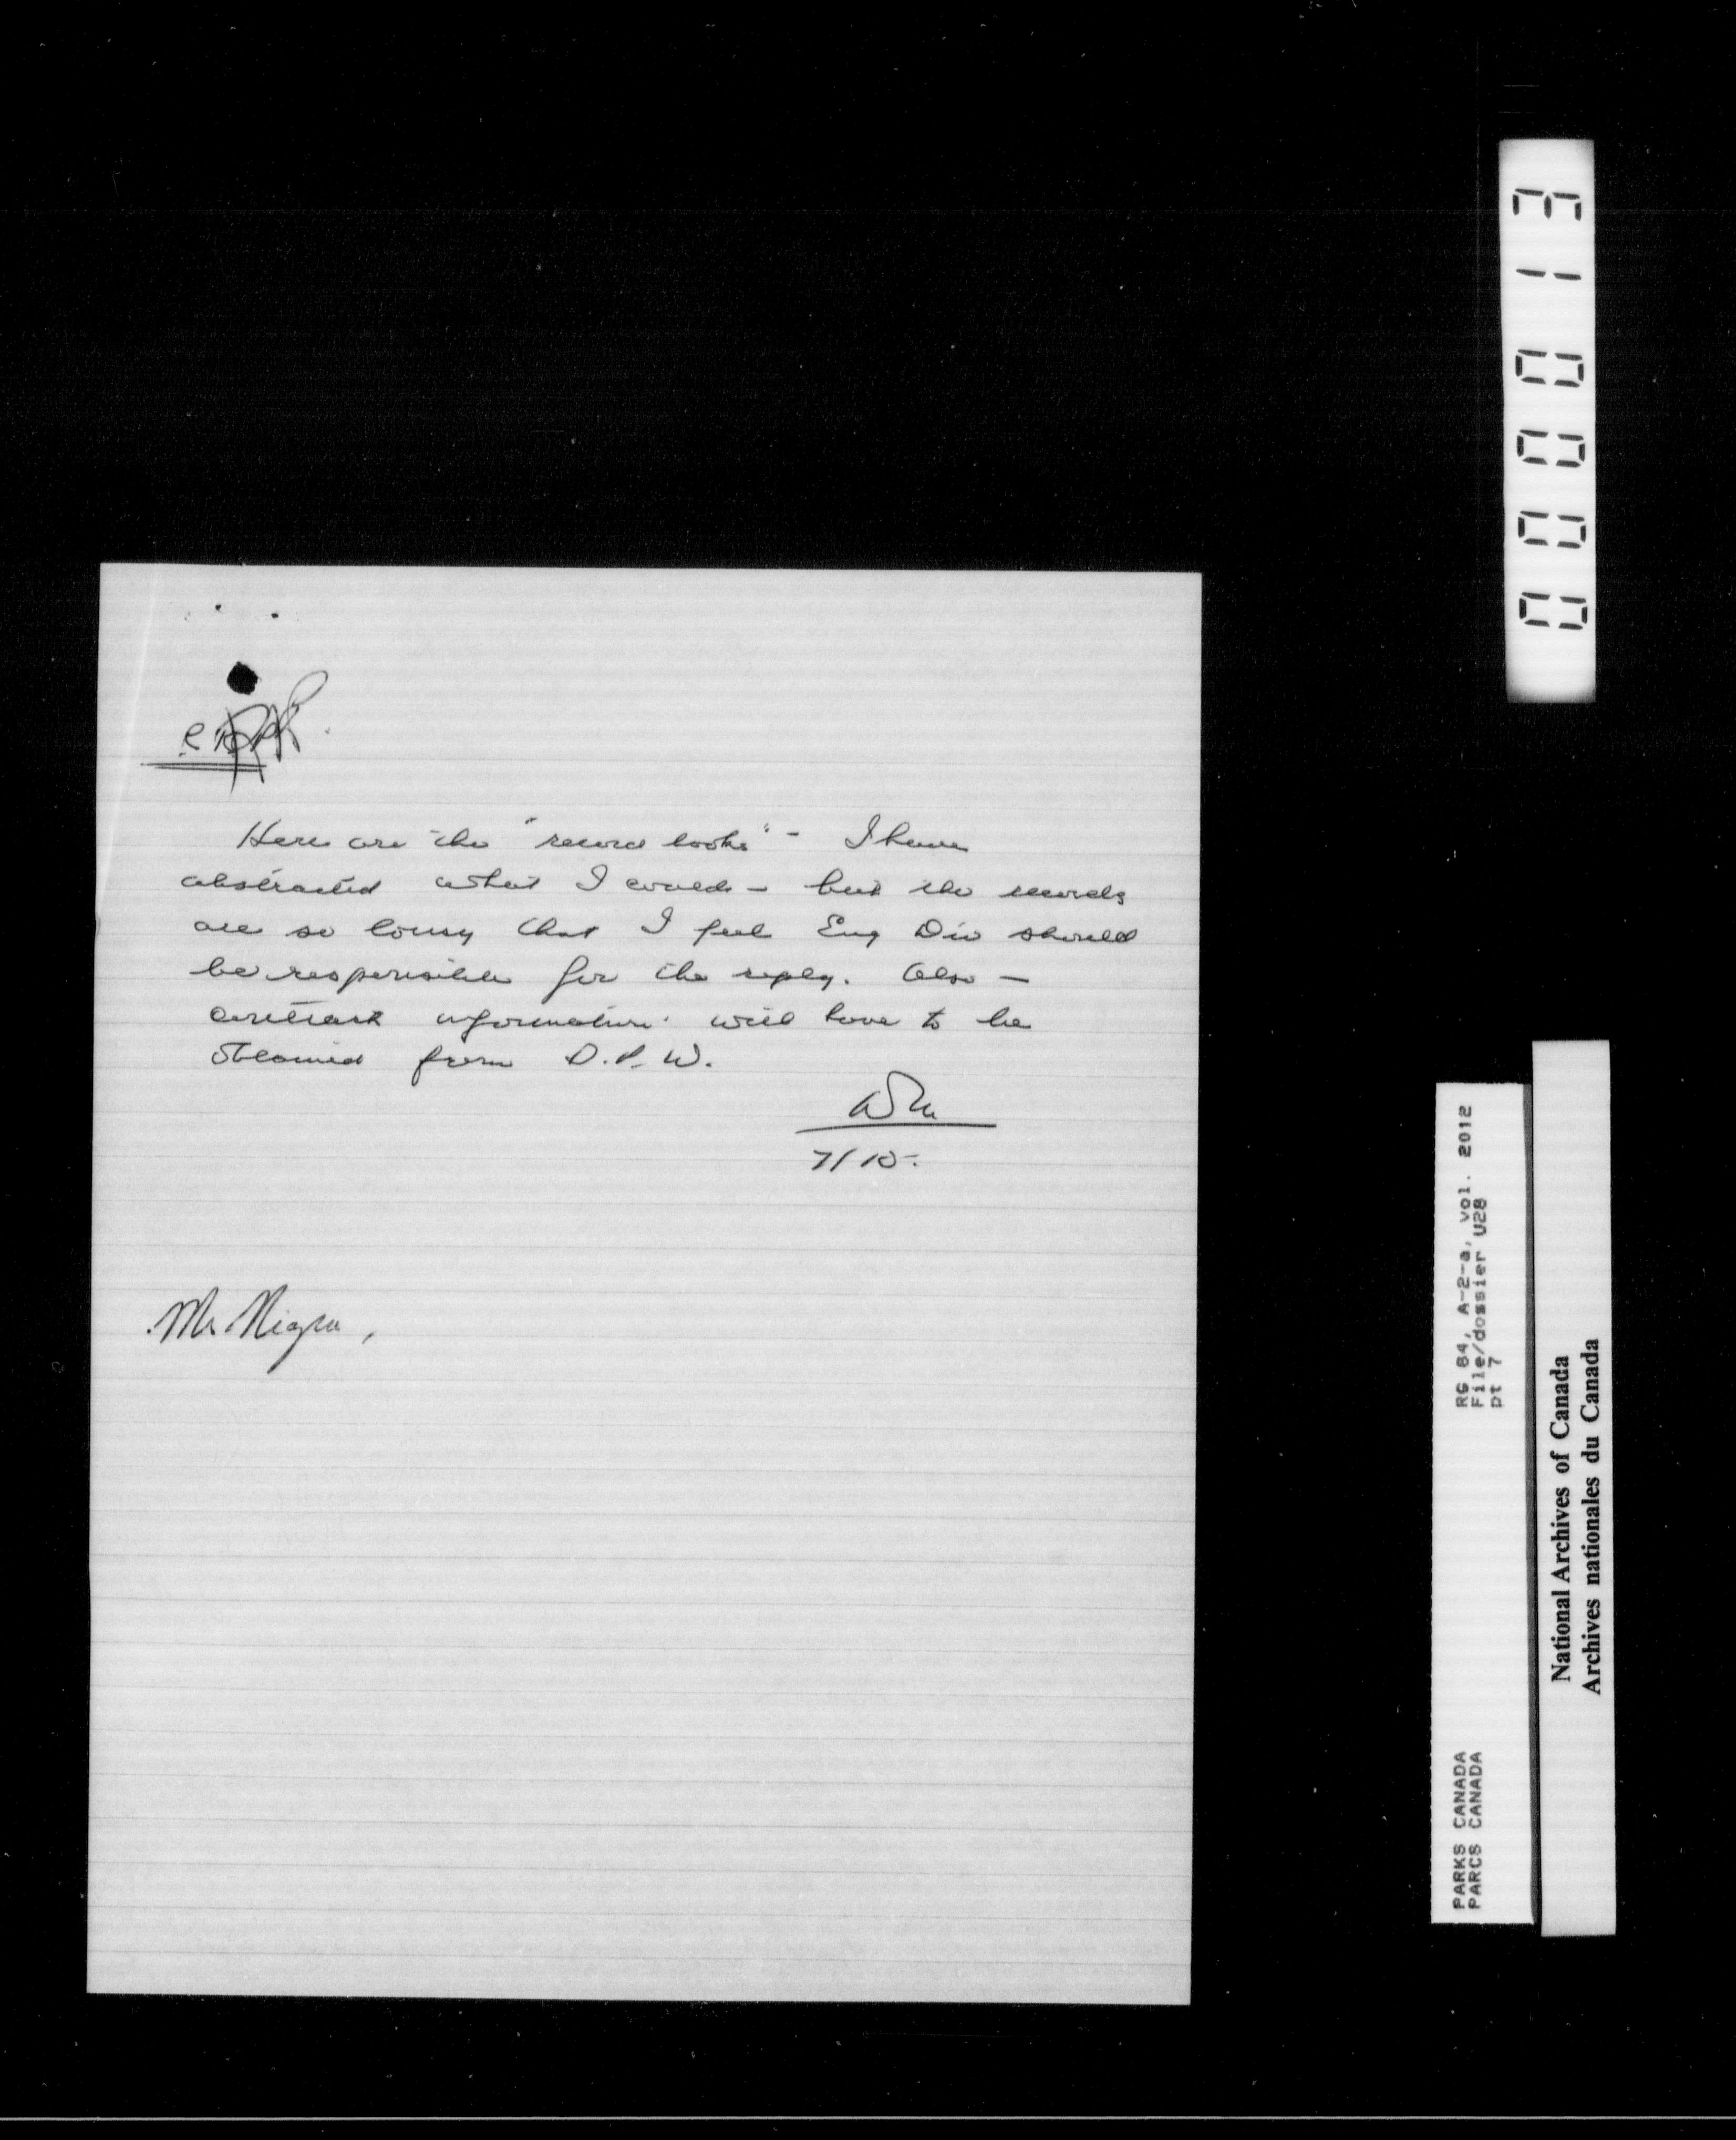 Here are the "record books" - I have
abstracted what I could - but the records
are so lousy that I feel Eng Div should
be responsible for the reply. Also -
contract information will have to be
obtained from D.P.W.
7/10.
Mr Nigra,
000013
RG 84, A-2-a, vol. 2012
File/dossier U28
pt 7
PARKS CANADA
PARCS CANADA
National Archives of Canada
Archives nationales du Canada